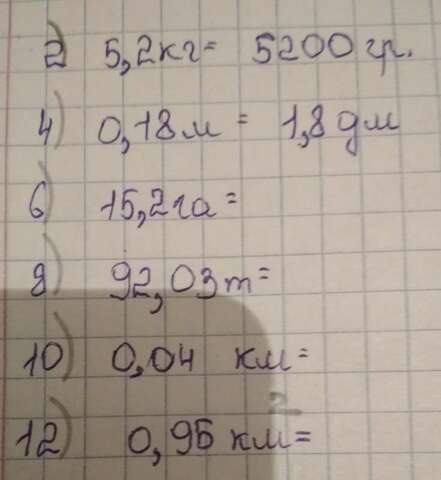 2) 5,2кг= 5200 гр.
4) 0,18м = 1,8 дм
6) 15,2га=
8) 92,03т=
10) 0,04 км=
12) 0,95 км²=